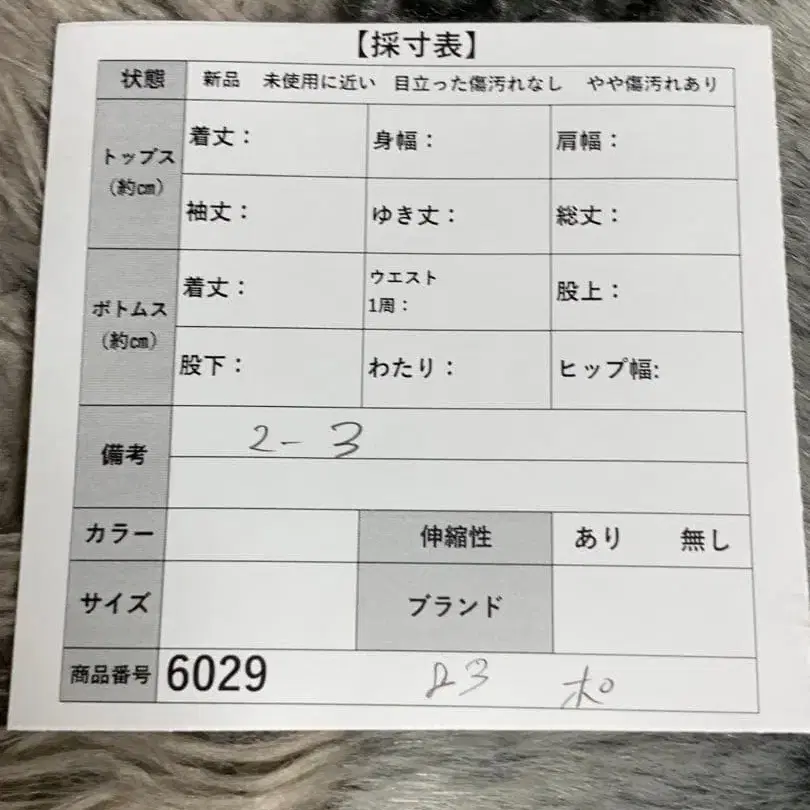 【採寸表】
状態 新品 未使用に近い 目立った傷汚れなし やや傷汚れあり
トップス（約㎝） 着丈： 身幅： 肩幅：
袖丈： ゆき丈： 総丈：
ボトムス（約㎝） 着丈： ウエスト1周： 股上：
股下： わたり： ヒップ幅:
備考 2-3
カラー 伸縮性 あり 無し
サイズ ブランド
商品番号 6029 23 ポ